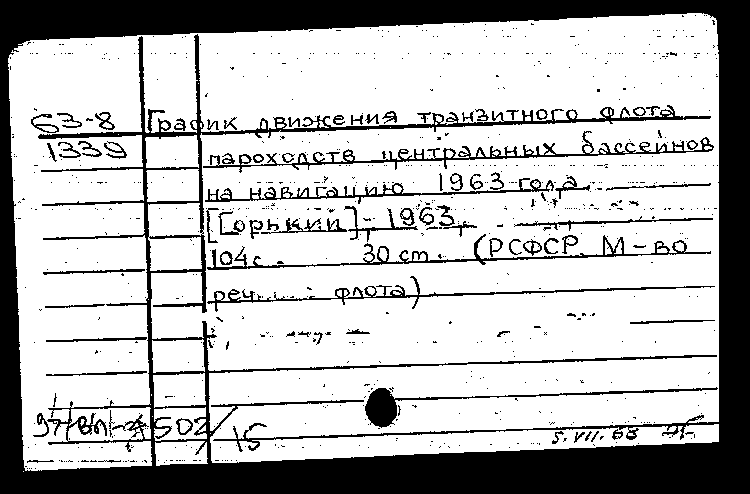 63-8 График движения транзитного флота
1339 пароходств центральных бассейнов
на навигацию 1963 года.
[Горький], 1963.
104 с. 30 см. (РСФСР. М-во
реч. флота)
502/15
5.VII.63